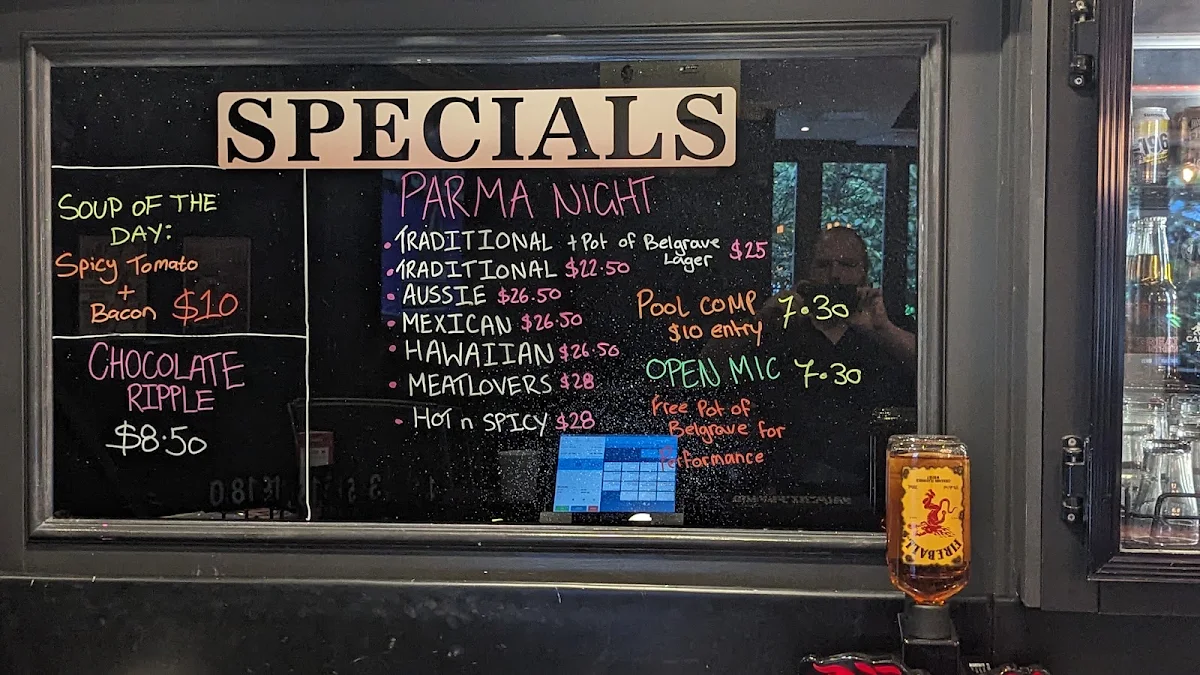 SPECIALS
SOUP OF THE
DAY:
Spicy Tomato
+
Bacon $10
CHOCOLATE
RIPPLE
$8.50
PARMA NIGHT
• TRADITIONAL + Pot of Belgrave
Lager $25
• TRADITIONAL $22.50
• AUSSIE $26.50
• MEXICAN $26.50
• HAWAIIAN $26.50
• MEATLOVERS $28
• HOT n SPICY $28
POOL COMP 7.30
$10 entry
OPEN MIC 7.30
Free Pot of
Belgrave for
Performance
FIREBALL